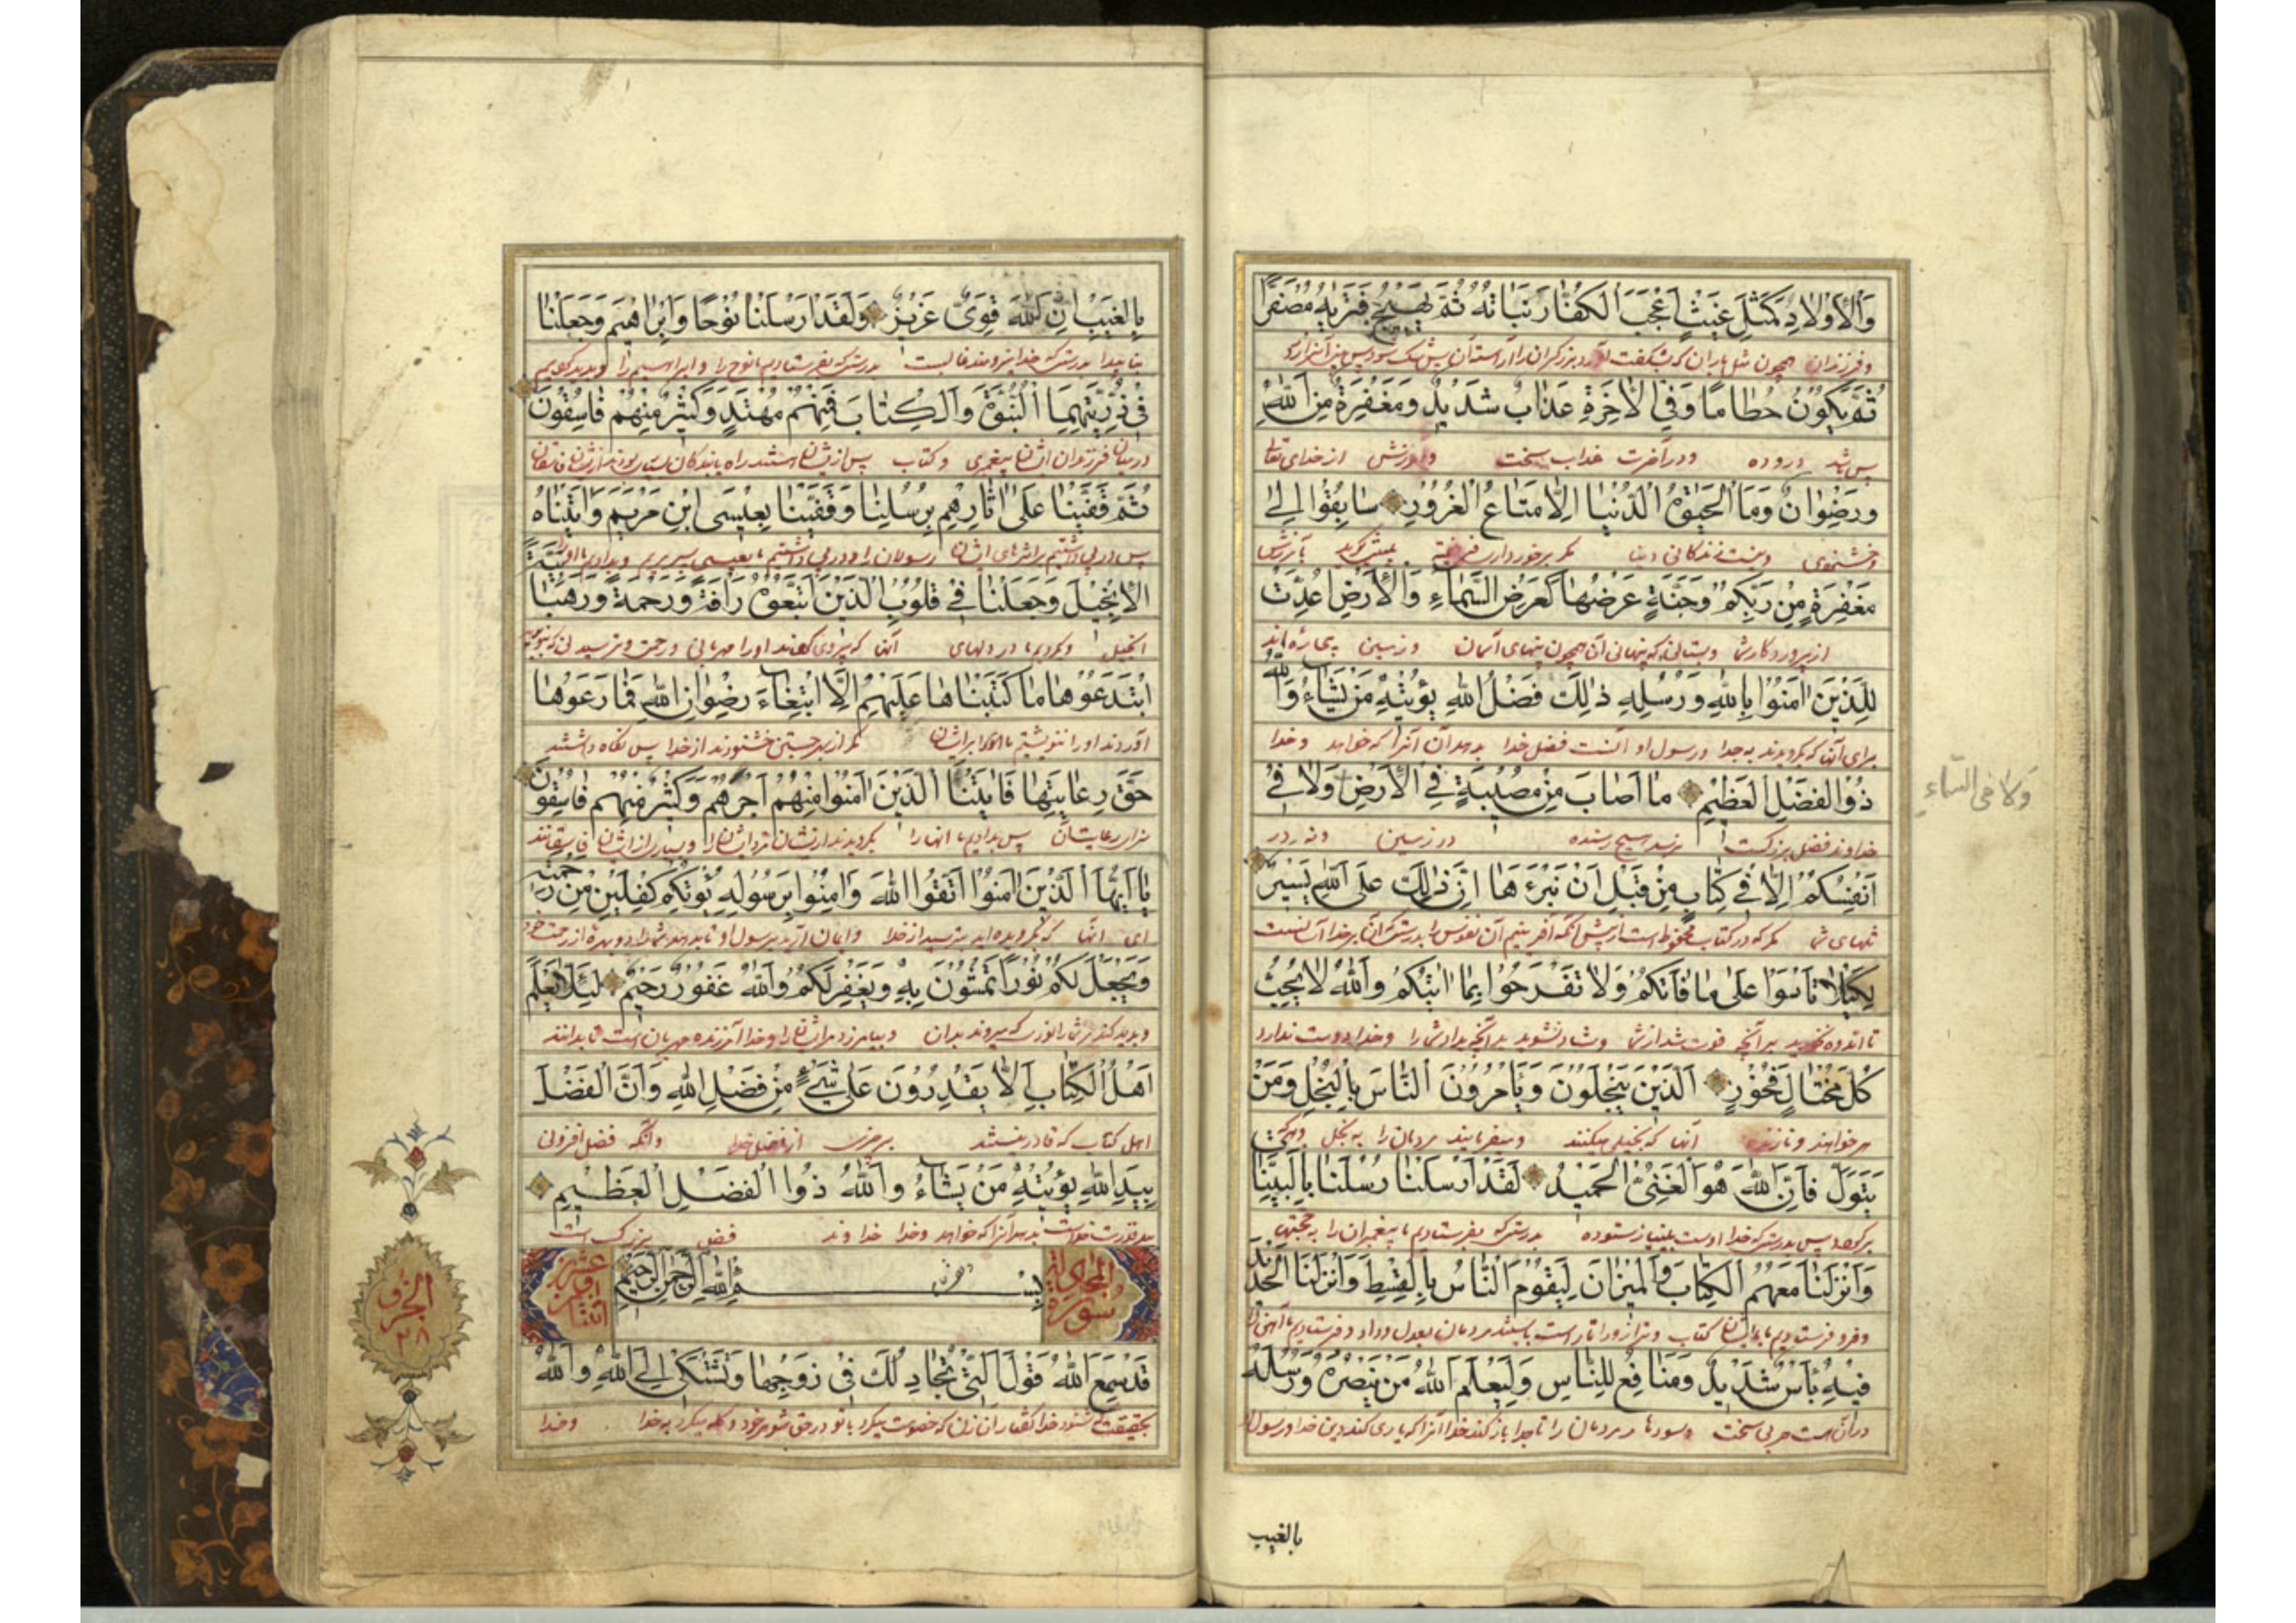 وَالْأَوْلَادِ كَمَثَلِ غَيْثٍ أَعْجَبَ الْكُفَّارَ نَبَاتُهُ ثُمَّ يَهِيجُ فَتَرَاهُ مُصْفَرًّا
و فرزندان همچون مثل باران که بشکفت
ثُمَّ يَكُونُ حُطَامًا وَفِي الْآخِرَةِ عَذَابٌ شَدِيدٌ وَمَغْفِرَةٌ مِنَ اللَّهِ
پس باشد دروده و در آخرت عذاب سخت و آمرزش از خدای تعالی
وَرِضْوَانٌ وَمَا الْحَيٰوةُ الدُّنْيَا إِلَّا مَتَاعُ الْغُرُورِ سَابِقُوا إِلَىٰ
و خشنودی و نیست زندگانی دنیا مگر برخورداری
مَغْفِرَةٍ مِنْ رَبِّكُمْ وَجَنَّةٍ عَرْضُهَا كَعَرْضِ السَّمَاءِ وَالْأَرْضِ أُعِدَّتْ
از پروردگارش و بستانی که پهنای آن همچون پهنای آسمان و زمین
لِلَّذِينَ آمَنُوا بِاللَّهِ وَرُسُلِهِ ذَٰلِكَ فَضْلُ اللَّهِ يُؤْتِيهِ مَنْ يَشَاءُ وَاللَّهُ
برای آنها که بگرویدند به خدا و رسول او آنست فضل خدا بدهد آن آنرا که خواهد و خدا
ذُو الْفَضْلِ الْعَظِيمِ مَا أَصَابَ مِنْ مُصِيبَةٍ فِي الْأَرْضِ وَلَا فِي
وَلَا فِي السَّمَاءِ
خداوند فضل بزرگست نرسد هیچ رسنده در زمین و نه در
أَنْفُسِكُمْ إِلَّا فِي كِتَابٍ مِنْ قَبْلِ أَنْ نَبْرَأَهَا إِنَّ ذَٰلِكَ عَلَى اللَّهِ يَسِيرٌ
تنهای شما مگر که در کتاب محفوظ است از پیش آنکه آفرینیم آن نفوس را بدرستی که آن بر خدا آسانست
لِكَيْلَا تَأْسَوْا عَلَىٰ مَا فَاتَكُمْ وَلَا تَفْرَحُوا بِمَا آتَيٰكُمْ وَاللَّهُ لَا يُحِبُّ
تا اندوه نخورید بر آنچه فوت شد از شما و شاد نشوید بدآنچه بداد شما را و خدا دوست ندارد
كُلَّ مُخْتَالٍ فَخُورٍ الَّذِينَ يَبْخَلُونَ وَيَأْمُرُونَ النَّاسَ بِالْبُخْلِ وَمَنْ
آنها که بخیلی میکنند و میفرمایند مردمان را به بخل و هرکه
يَتَوَلَّ فَإِنَّ اللَّهَ هُوَ الْغَنِيُّ الْحَمِيدُ لَقَدْ أَرْسَلْنَا رُسُلَنَا بِالْبَيِّنَاتِ
پس بدرستی که خدا اوست بی‌نیاز ستوده بدرستی که بفرستادیم ما پیغمبران را به حجتهای
وَأَنْزَلْنَا مَعَهُمُ الْكِتَابَ وَالْمِيزَانَ لِيَقُومَ النَّاسُ بِالْقِسْطِ وَأَنْزَلْنَا الْحَدِيدَ
و فرو فرستادیم با ایشان کتاب و ترازو را تا راست بایستند مردمان بعدل و داد و فرستادیم ما آهن را
فِيهِ بَأْسٌ شَدِيدٌ وَمَنَافِعُ لِلنَّاسِ وَلِيَعْلَمَ اللَّهُ مَنْ يَنْصُرُهُ وَرُسُلَهُ
در آن است حربی سخت و سودها مردمان را
بالغيب
بِالْغَيْبِ إِنَّ اللَّهَ قَوِيٌّ عَزِيزٌ وَلَقَدْ أَرْسَلْنَا نُوحًا وَإِبْرَاهِيمَ وَجَعَلْنَا
بدرستی که خدا نیرومند غالبست بدرستی که بفرستادیم ما نوح را و ابراهیم را
فِي ذُرِّيَّتِهِمَا النُّبُوَّةَ وَالْكِتَابَ فَمِنْهُمْ مُهْتَدٍ وَكَثِيرٌ مِنْهُمْ فَاسِقُونَ
در میان فرزندان ایشان پیغمبری و کتاب پس از ایشان هستند راه یابندگان
ثُمَّ قَفَّيْنَا عَلَىٰ آثَارِهِمْ بِرُسُلِنَا وَقَفَّيْنَا بِعِيسَى ابْنِ مَرْيَمَ وَآتَيْنَاهُ
پس در پی داشتیم بر اثرهای ایشان رسولان را و در پی داشتیم ما بعیسی پسر مریم و بدادیم ما او را
الْإِنْجِيلَ وَجَعَلْنَا فِي قُلُوبِ الَّذِينَ اتَّبَعُوهُ رَأْفَةً وَرَحْمَةً وَرَهْبَانِيَّةً
انجیل و کردیم ما در دلهای آنها که پیروی کردند او را مهربانی و رحمت
ابْتَدَعُوهَا مَا كَتَبْنَاهَا عَلَيْهِمْ إِلَّا ابْتِغَاءَ رِضْوَانِ اللَّهِ فَمَا رَعَوْهَا
مگر از بهر جستن خشنودی از خدا پس نگاه داشتند
حَقَّ رِعَايَتِهَا فَآتَيْنَا الَّذِينَ آمَنُوا مِنْهُمْ أَجْرَهُمْ وَكَثِيرٌ مِنْهُمْ فَاسِقُونَ
سزای رعایت آن پس بدادیم ما آنها را بگرویدند از ایشان مزد ایشان را و بسیاری از ایشان فاسقانند
يَا أَيُّهَا الَّذِينَ آمَنُوا اتَّقُوا اللَّهَ وَآمِنُوا بِرَسُولِهِ يُؤْتِكُمْ كِفْلَيْنِ مِنْ رَحْمَتِهِ
ای آنها که بگرویده‌اید بترسید از خدا و ایمان آرید برسول او تا بدهد شما را دو بهره از رحمت خود
وَيَجْعَلْ لَكُمْ نُورًا تَمْشُونَ بِهِ وَيَغْفِرْ لَكُمْ وَاللَّهُ غَفُورٌ رَحِيمٌ لِئَلَّا يَعْلَمَ
و خدا آمرزنده مهربان است تا بدانند
أَهْلُ الْكِتَابِ أَلَّا يَقْدِرُونَ عَلَىٰ شَيْءٍ مِنْ فَضْلِ اللَّهِ وَأَنَّ الْفَضْلَ
اهل کتاب که قادر نیستند بر چیزی از فضل خدا و آنکه فضل افزونی
بِيَدِ اللَّهِ يُؤْتِيهِ مَنْ يَشَاءُ وَاللَّهُ ذُو الْفَضْلِ الْعَظِيمِ
بدهد آنرا که خواهد و خدا خداوند فضل بزرگ است
سورة المجادلة
بِسْمِ اللَّهِ الرَّحْمَٰنِ الرَّحِيمِ
عشرین آیات اثنتا
الجزؤ ٢٨
قَدْ سَمِعَ اللَّهُ قَوْلَ الَّتِي تُجَادِلُكَ فِي زَوْجِهَا وَتَشْتَكِي إِلَى اللَّهِ وَاللَّهُ
بحقیقت شنود خدا گفتار آن زن که خصومت میکرد با تو در حق شوهر خود و گله میکرد به خدا و خدا